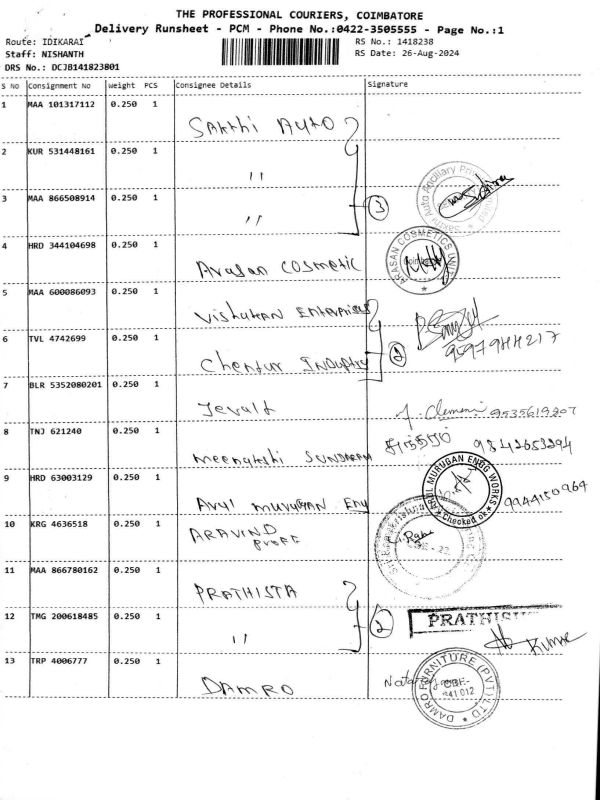 THE PROFESSIONAL COURIERS, COIMBATORE
Delivery Runsheet - PCM - Phone No.:0422-3505555 - Page No.:1
Route: IDIKARAI
RS No.: 1418238
Staff: NISHANTH
RS Date: 26-Aug-2024
DRS No.: DCJB141823801
S No Consignment No Weight PCS Consignee Details Signature
1 MAA 101317112 0.250 1
Sakthi Auto
2 KUR 531448161 0.250 1
"
3 MAA 866508914 0.250 1
"
3
4 HRD 344104698 0.250 1
Arasan Cosmetic
ARASAN COSMETICS UNIT
5 MAA 600086093 0.250 1
Vishukan Enterprises
6 TVL 4742699 0.250 1
Chentur Industry
2
7 BLR 5352080201 0.250 1
Jevalt
J. Clemeni 9535619207
8 TNJ 621240 0.250 1
meenakshi SUNDARAM
9842653294
9 HRD 63003129 0.250 1
Arul murugan Eng
ARUL MURUGAN ENGG WORKS
Checked ok
9944150964
10 KRG 4636518 0.250 1
ARAVIND
11 MAA 866780162 0.250 1
PRATHISTA
12 TMG 200618485 0.250 1
"
2
PRATHISH
Kumar
13 TRP 4006777 0.250 1
DAMRO
DAMRO FURNITURE (PVT) LTD
CBE-
641 012